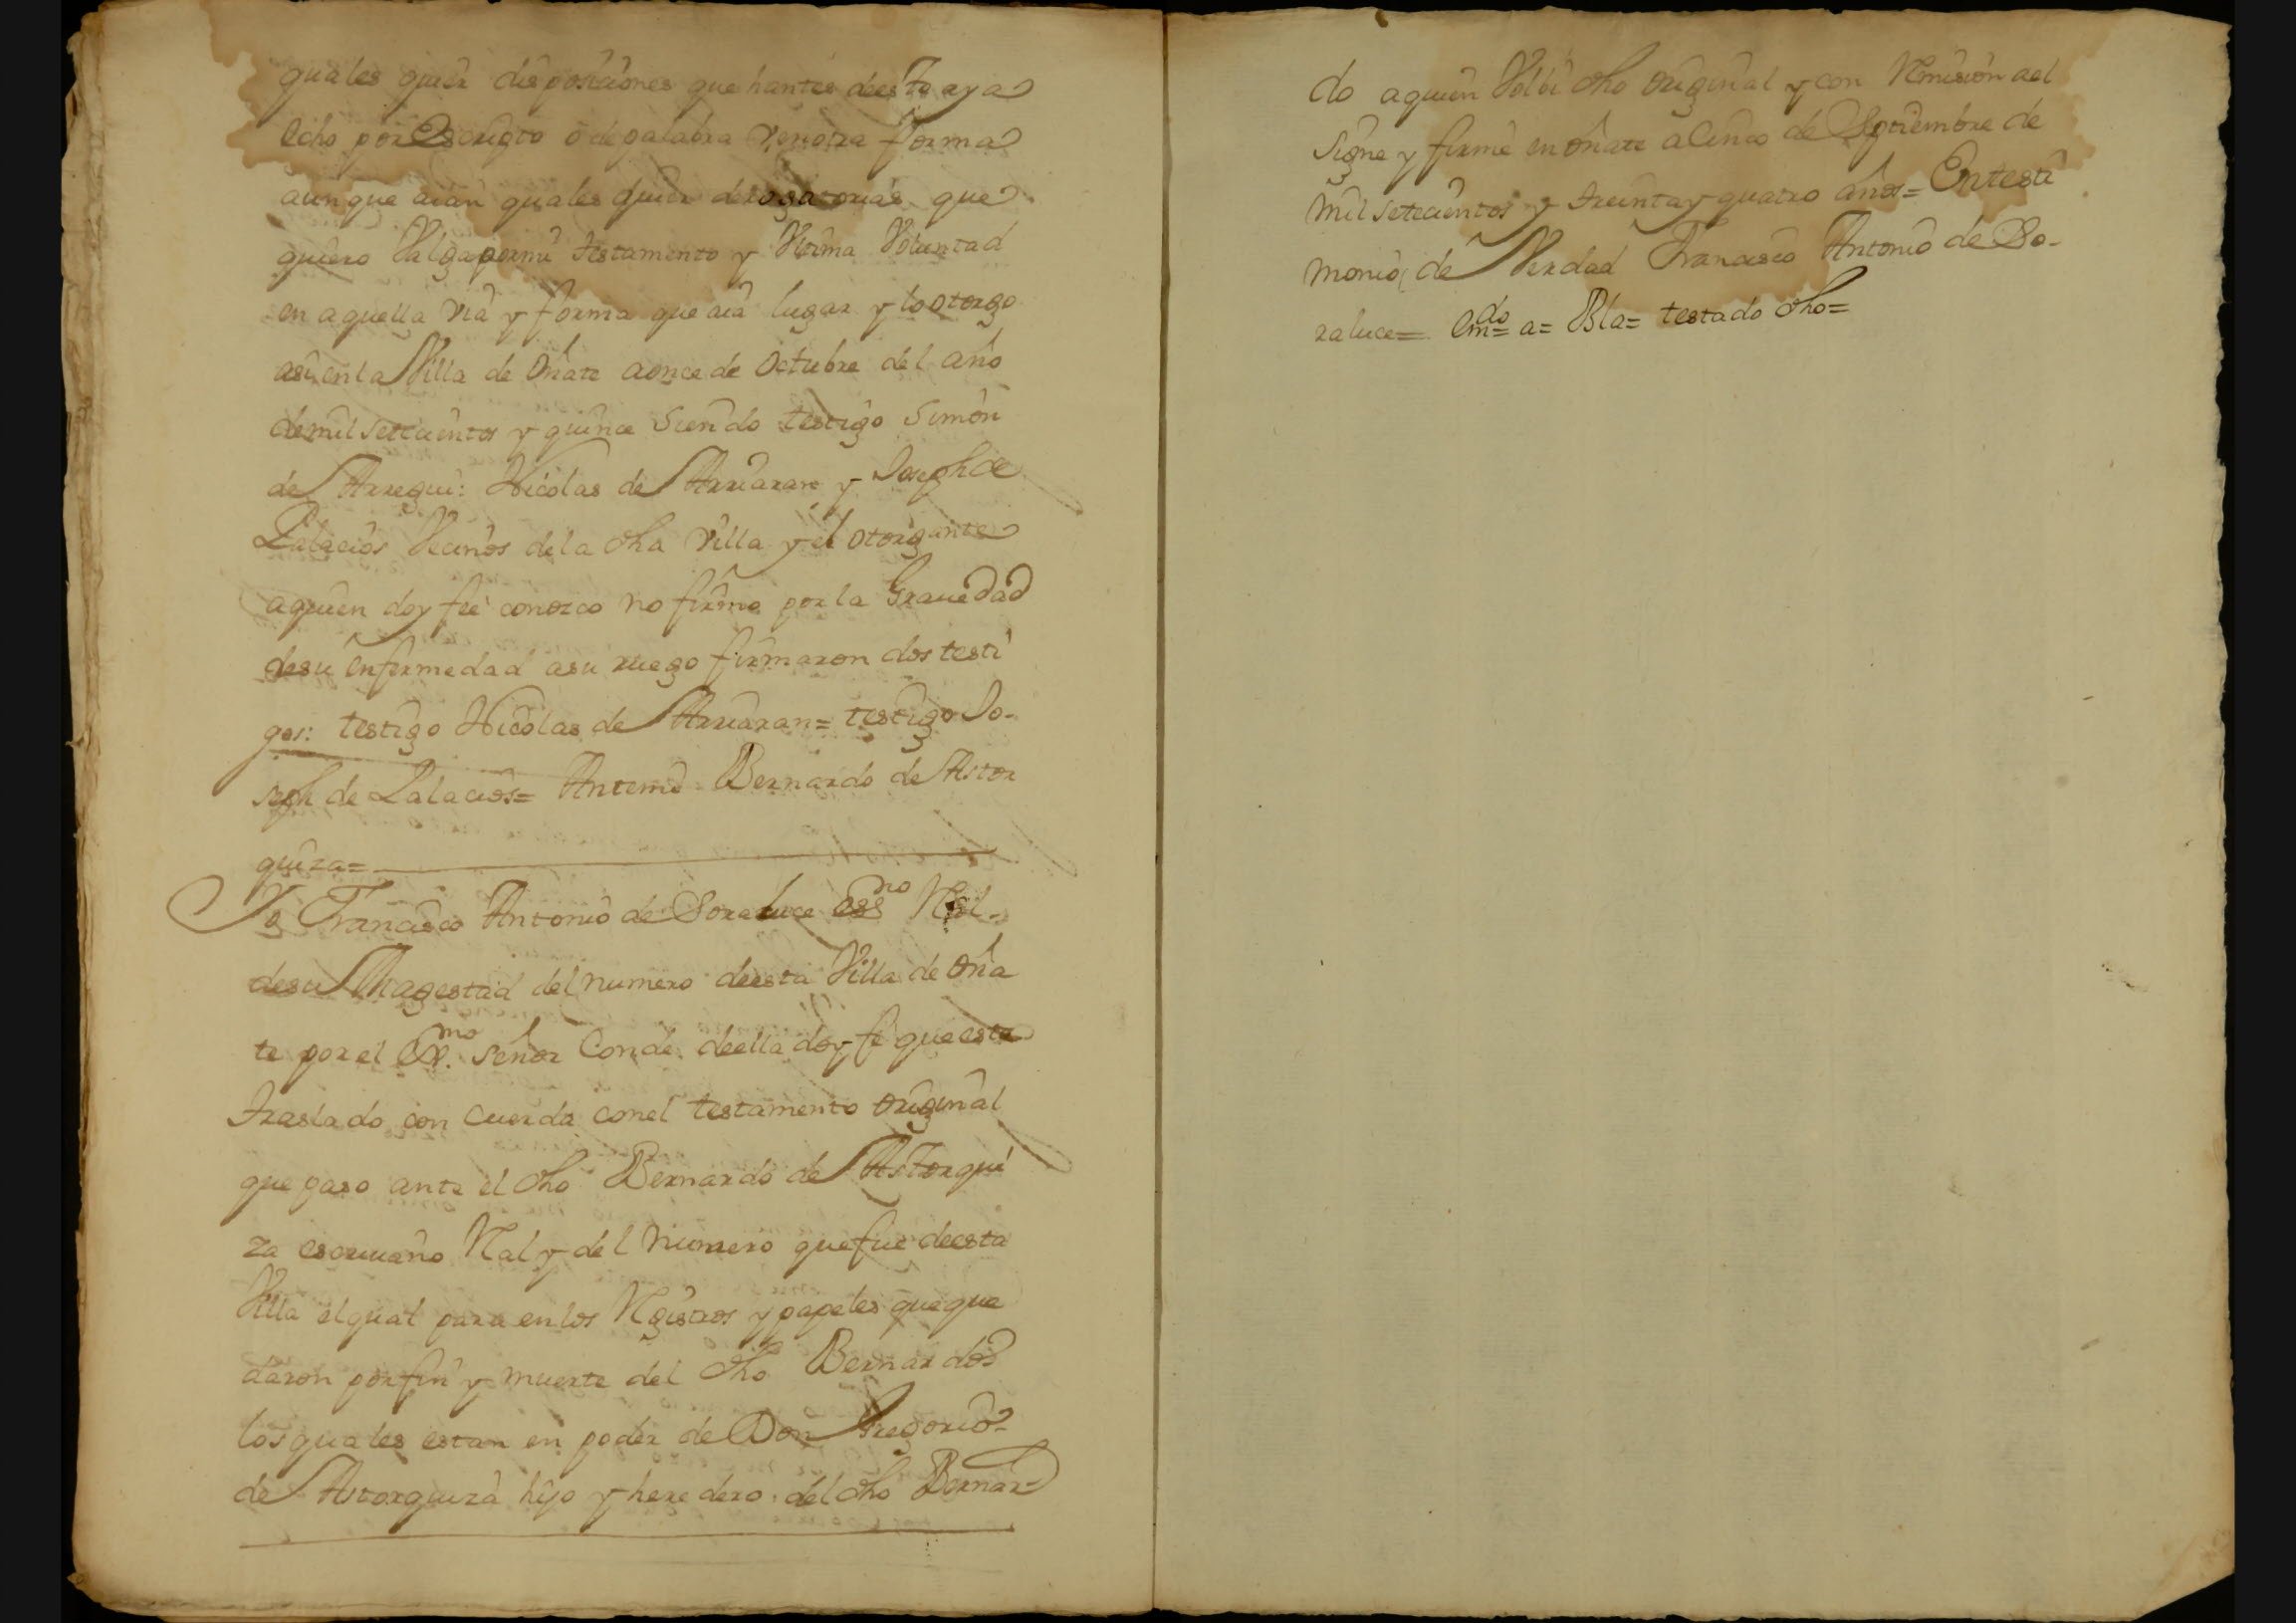 quales quier disposiciones que hantes deesto aya
echo por Escripto ó de palabra Venotra forma
aunque aian quales quier derogatorias que
quiero Valga pormi testamento y Vltima Voluntad
en aquella via y forma que aia lugar y lo otorgo
asi, en la Villa de Oñate aonce de Octubre del año
demil setecientos y quince Siendo testigo Simon
de Arregui: Nicolas de Arriaran y Joseph de
Palacios Vecinos dela dha Villa y el otorgante
aquien doy feé conozco no firmo por la Grauedad
desu enfermedad asu ruego firmaron dos testi
gos: testigo Nicolas de Arriaran= testigo Jo-
seph de Palacios= Antemi Bernardo de Astor
quiza=
Yo Francisco Antonio de Soraluce essno Rl.
desu Magestad del numero deesta Villa de Oña
te por el Exmo. Señor Conde deella doy fe que este
traslado con cuerda conel testamento original
que paso ante el dho Bernardo de Astorqui
za escriuano Ral y del Numero que fue deesta
Villa elqual para en los Registros y papeles que que
daron porfin y muerte del dho Bernardo
los quales estan en poder de Don Gregorio
de Astorquiza hijo y heredero del dho Bernar=
do aquien Volbi dho original y con Remision ael
Signe y firmé en Oñate a Cinco de Septiembre de
mil setecientos y treinta y quatro años= En testi
monio de Verdad Francisco Antonio de So-
raluce= Emdo= a= Bla= testado dho=